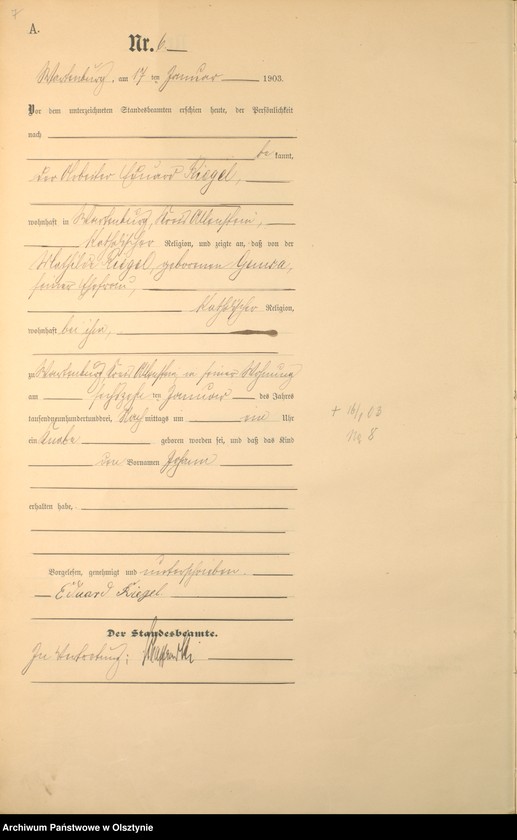 7
A.
Nr. 6
Wartenburg, am 17 ten Januar 1903.
Vor dem unterzeichneten Standesbeamten erschien heute, der Persönlichkeit
nach
be kannt,
der Arbeiter Eduard Kiegel,
wohnhaft in Wartenburg, Kreis Allenstein,
katholischer Religion, und zeigte an, daß von der
Mathilde Kiegel, geborenen
seiner Ehefrau,
katholischer Religion,
wohnhaft bei ihm,
zu Wartenburg, Kreis Allenstein in seiner Wohnung
am sechszehn ten Januar des Jahres
tausendneunhundertunddrei, Nach mittags um Uhr
ein Knabe geboren worden sei, und daß das Kind
Vornamen Johann
+ 16/1 03
Nr 8
erhalten habe,
Vorgelesen, genehmigt und unterschrieben.
Eduard Kiegel
Der Standesbeamte.
In Vertretung:
Archiwum Państwowe w Olsztynie